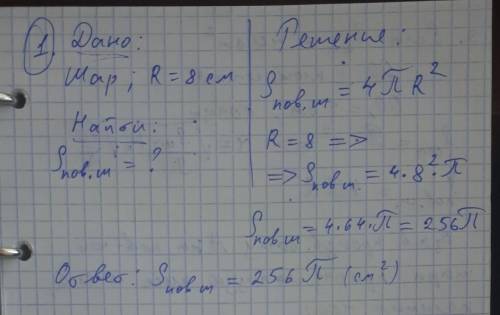 1. Дано:
Шар; R = 8 см
Найти:
Sпов.ш = ?
Решение:
Sпов.ш = 4πR²
R = 8 =>
=> Sпов.ш. = 4·8²·π
Sпов.ш = 4·64·π = 256π
Ответ: Sпов.ш = 256π (см²)